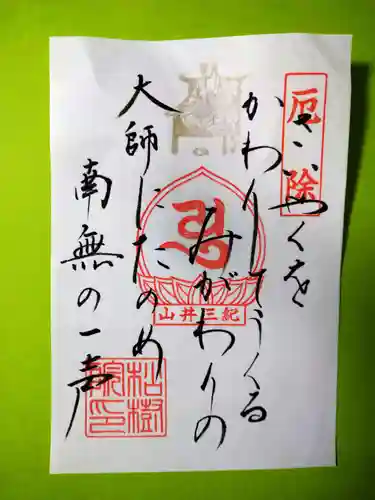 厄除
さいやくを
かわりてうくる
みがわりの
大師にたのめ
南無の一声
山井三紀
松樹院印